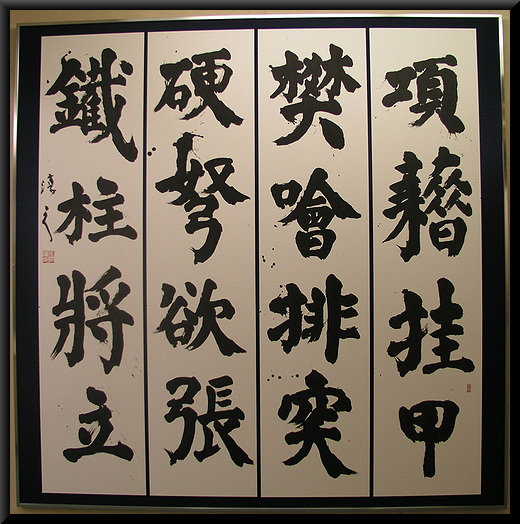 項籍挂甲
樊噲排突
硬弩欲張
鐵柱將立